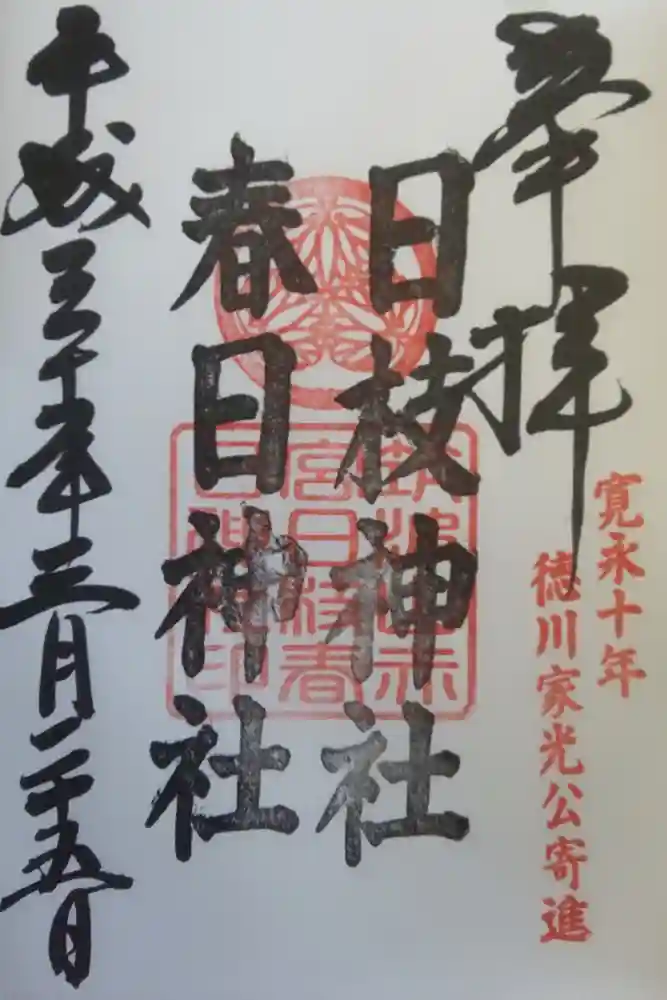 奉拝
寛永十年
徳川家光公寄進
日枝神社
春日神社
宮日枝春
日神社印
平成三十年三月二十五日